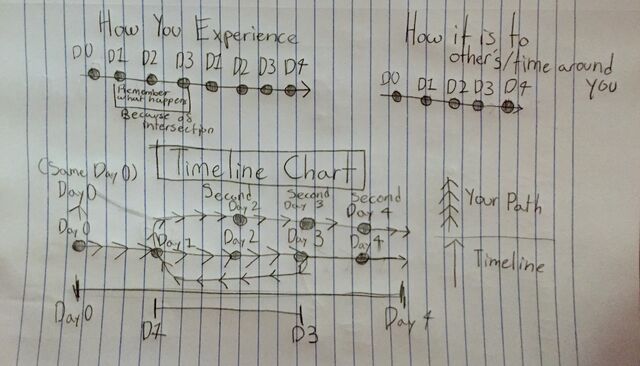 How You Experience
D0 D1 D2 D3 D1 D2 D3 D4
Remember
what happens
Because of
intersection
How it is to
other's/time around
you
D0 D1 D2 D3 D4
Timeline Chart
(Same Day 0)
Day 0
Second
Day 2
Second
Day 3
Second
Day 4
Day 0
Day 1
Day 2
Day 3
Day 4
Your Path
Timeline
Day 0
D1
D3
Day 4